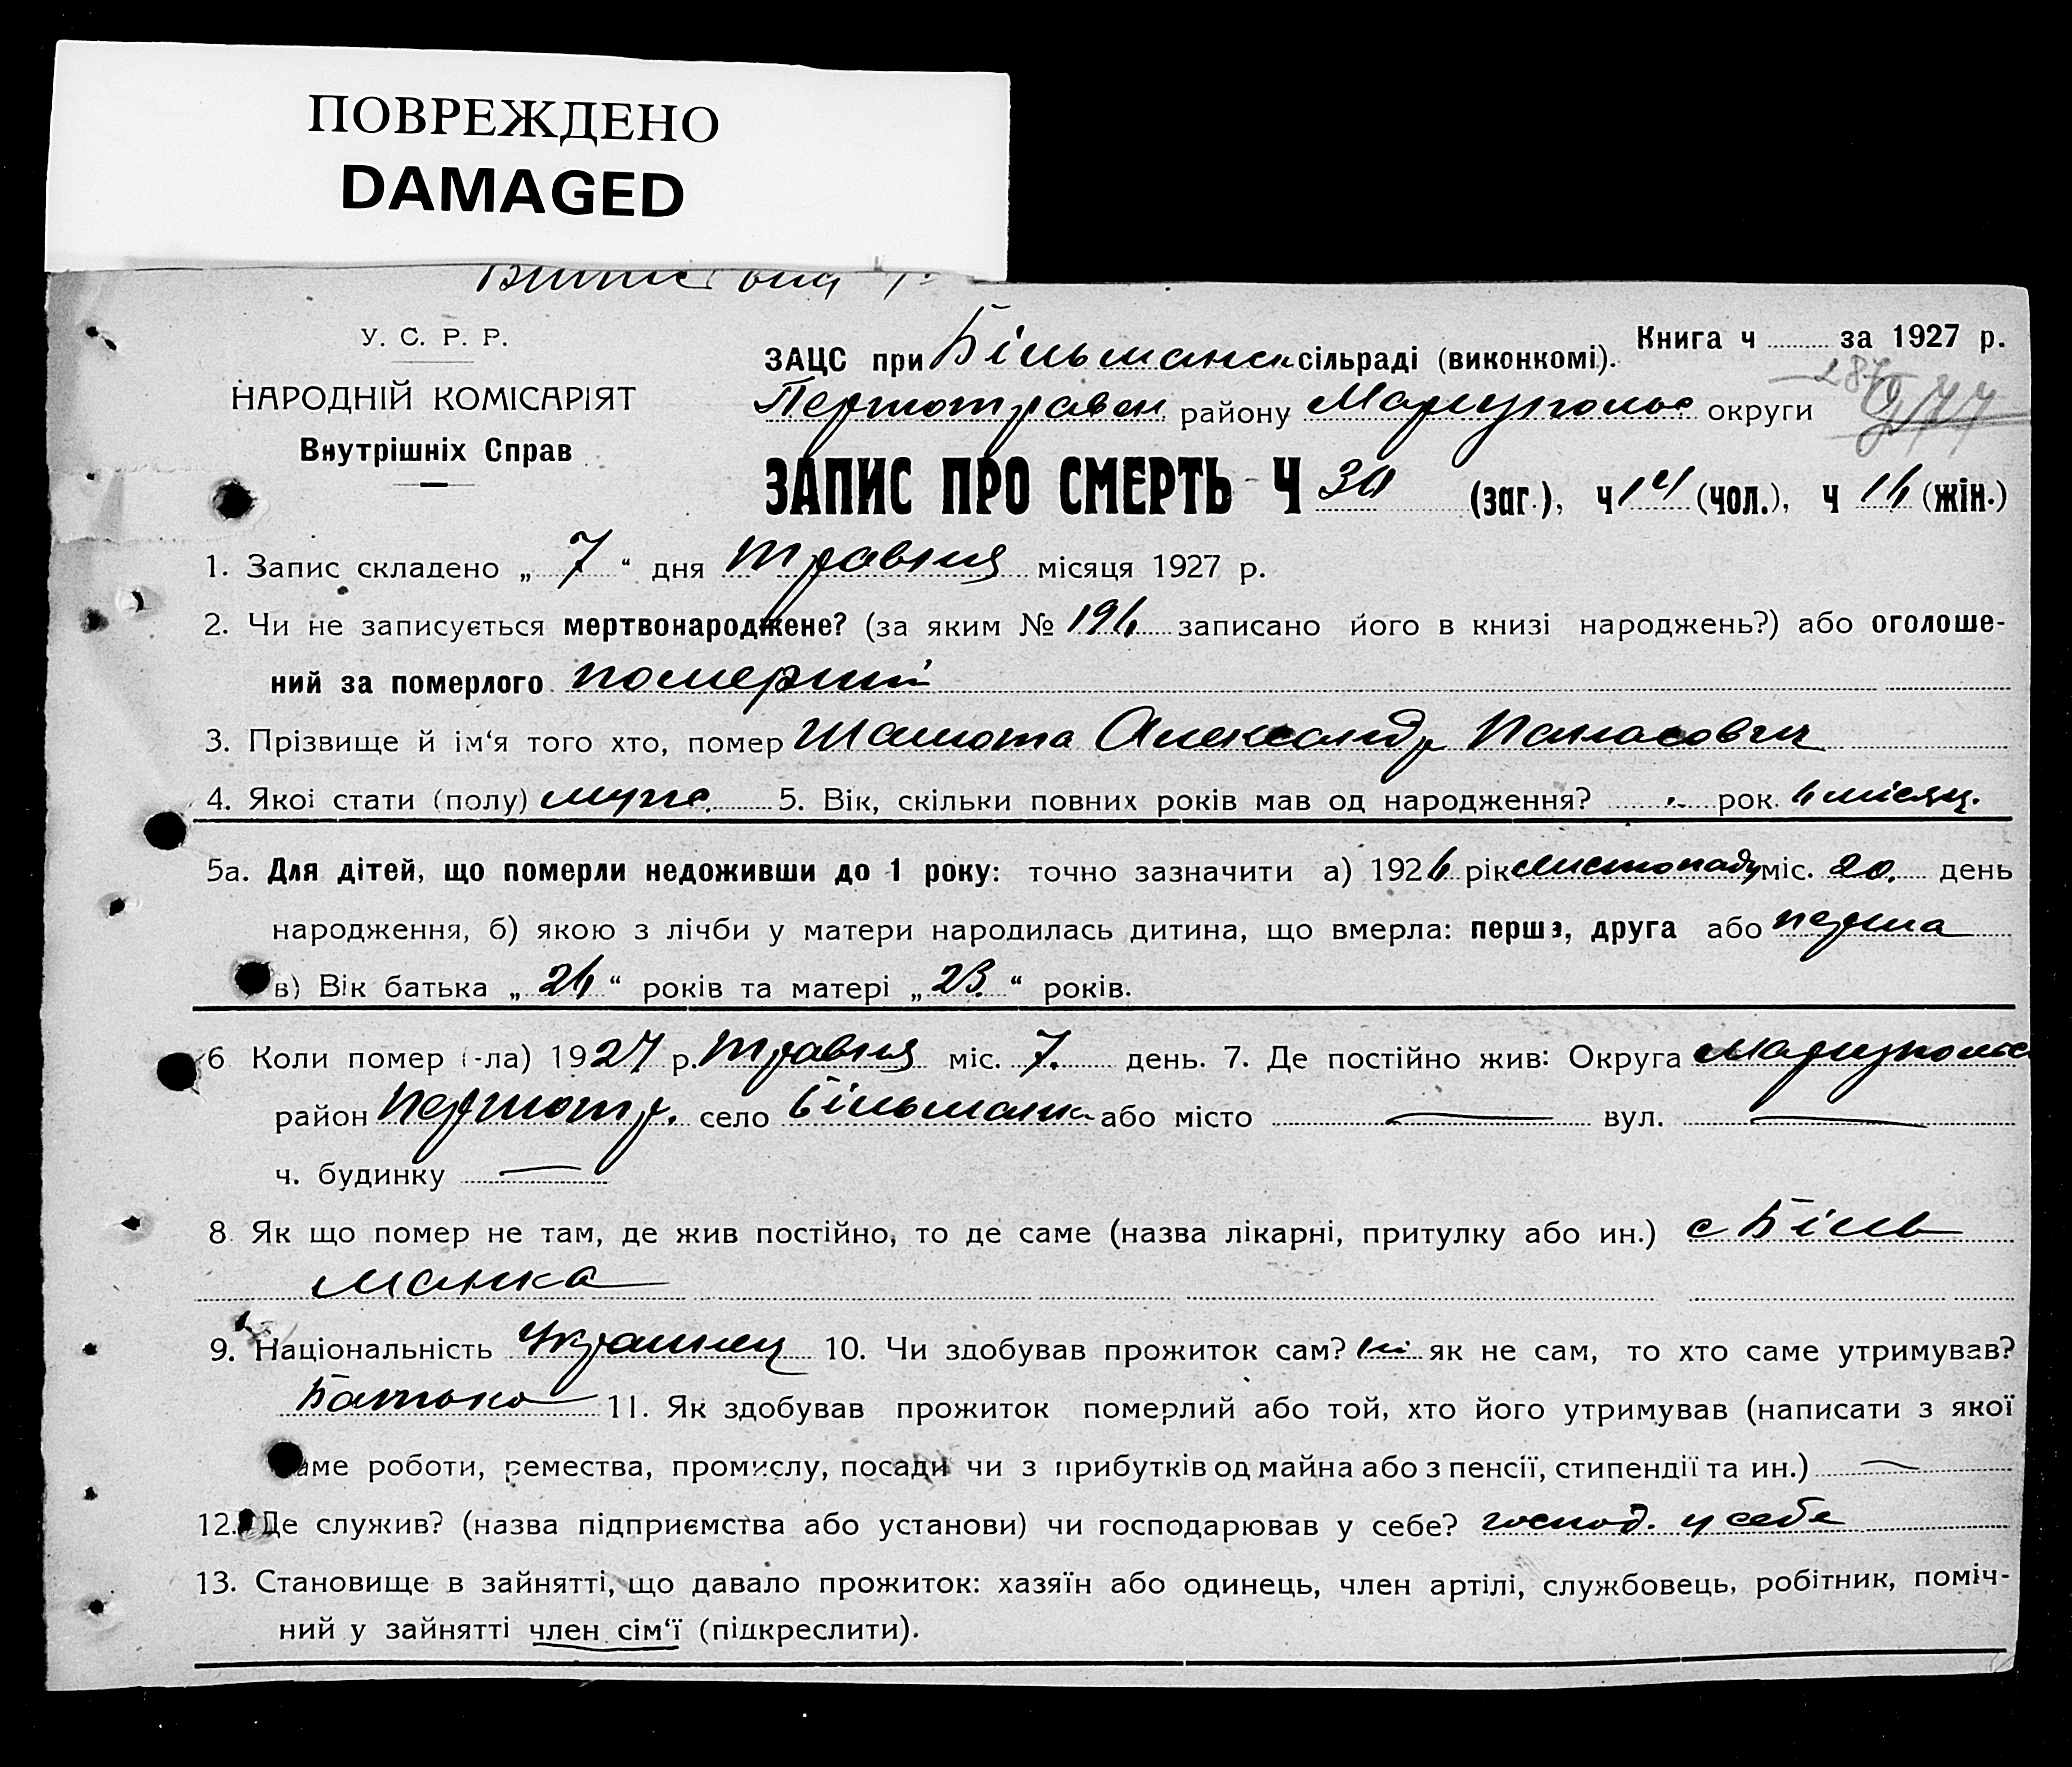 ПОВРЕЖДЕНО
DAMAGED
У. С. Р. Р.
НАРОДНІЙ КОМІСАРІЯТ
Внутрішніх Справ
Книга ч за 1927 р.
ЗАЦС при Більманск сільраді (виконкомі).
Першотравен. району Маріупольс округи
ЗАПИС ПРО СМЕРТЬ Ч 30 (заг.), ч 14 (чол.), ч 16 (жін.)
1. Запис складено „ 7 “ дня травня місяця 1927 р.
2. Чи не записується мертвонароджене? (за яким № 196 записано його в книзі народжень?) або оголоше-
ний за померлого померший
3. Прізвище й ім‘я того хто, помер Шамота Александр Панасович
4. Якоі стати (полу) мужс. 5. Вік, скільки повних років мав од народження? рок. 6 місяц.
5а. Для дітей, що померли недоживши до 1 року: точно зазначити а) 1926 рік листопаду міс. 20. день
народження, б) якою з лічби у матери народилась дитина, що вмерла: перша, друга або перша
в) Вік батька „ 26 “ років та матері „ 23. “ років.
6 Коли помер (-ла) 1927 р. травня міс. 7. день. 7. Де постійно жив: Округа Маріупольс
район Першотр. село Більманк або місто — вул. —
ч. будинку —
8. Як що помер не там, де жив постійно, то де саме (назва лікарні, притулку або ин.) с Біль
манка
9. Національність Украинец 10. Чи здобував прожиток сам? ні як не сам, то хто саме утримував?
Батько 11. Як здобував прожиток померлий або той, хто його утримував (написати з якої
саме роботи, ремества, промислу, посади чи з прибутків од майна або з пенсії, стипендії та ин.) —
12. Де служив? (назва підприємства або установи) чи господарював у себе? господ. у себе
13. Становище в зайнятті, що давало прожиток: хазяїн або одинець, член артілі, службовець, робітник, поміч-
ний у зайнятті член сім‘ї (підкреслити).